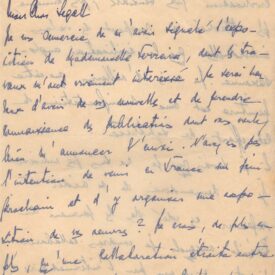 Mon cher Segall
Je vous remercie de m'avoir signalé l'expo-
sition de Mademoiselle dont le tra-
vail m'a vivement intéressé. Je serai heu-
reux d'avoir de vos nouvelles et de prendre
connaissance des publications dont vous voulez
bien m'annoncer l'envoi. N'avez vous pas
l'intention de venir en France un
prochain et d'y organiser une expo-
sition de vos œuvres ? Je crois, de plus en
plus, qu'une collaboration étroite entre